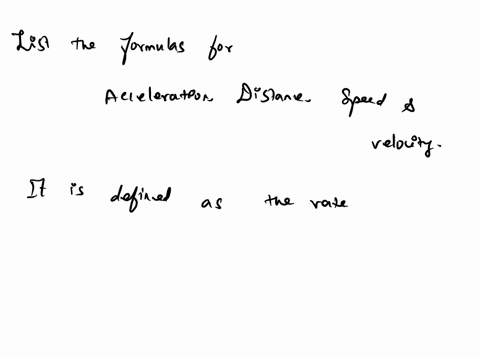 List the formulas for
Acceleration Distance Speed &
velocity.
It is defined as the rate